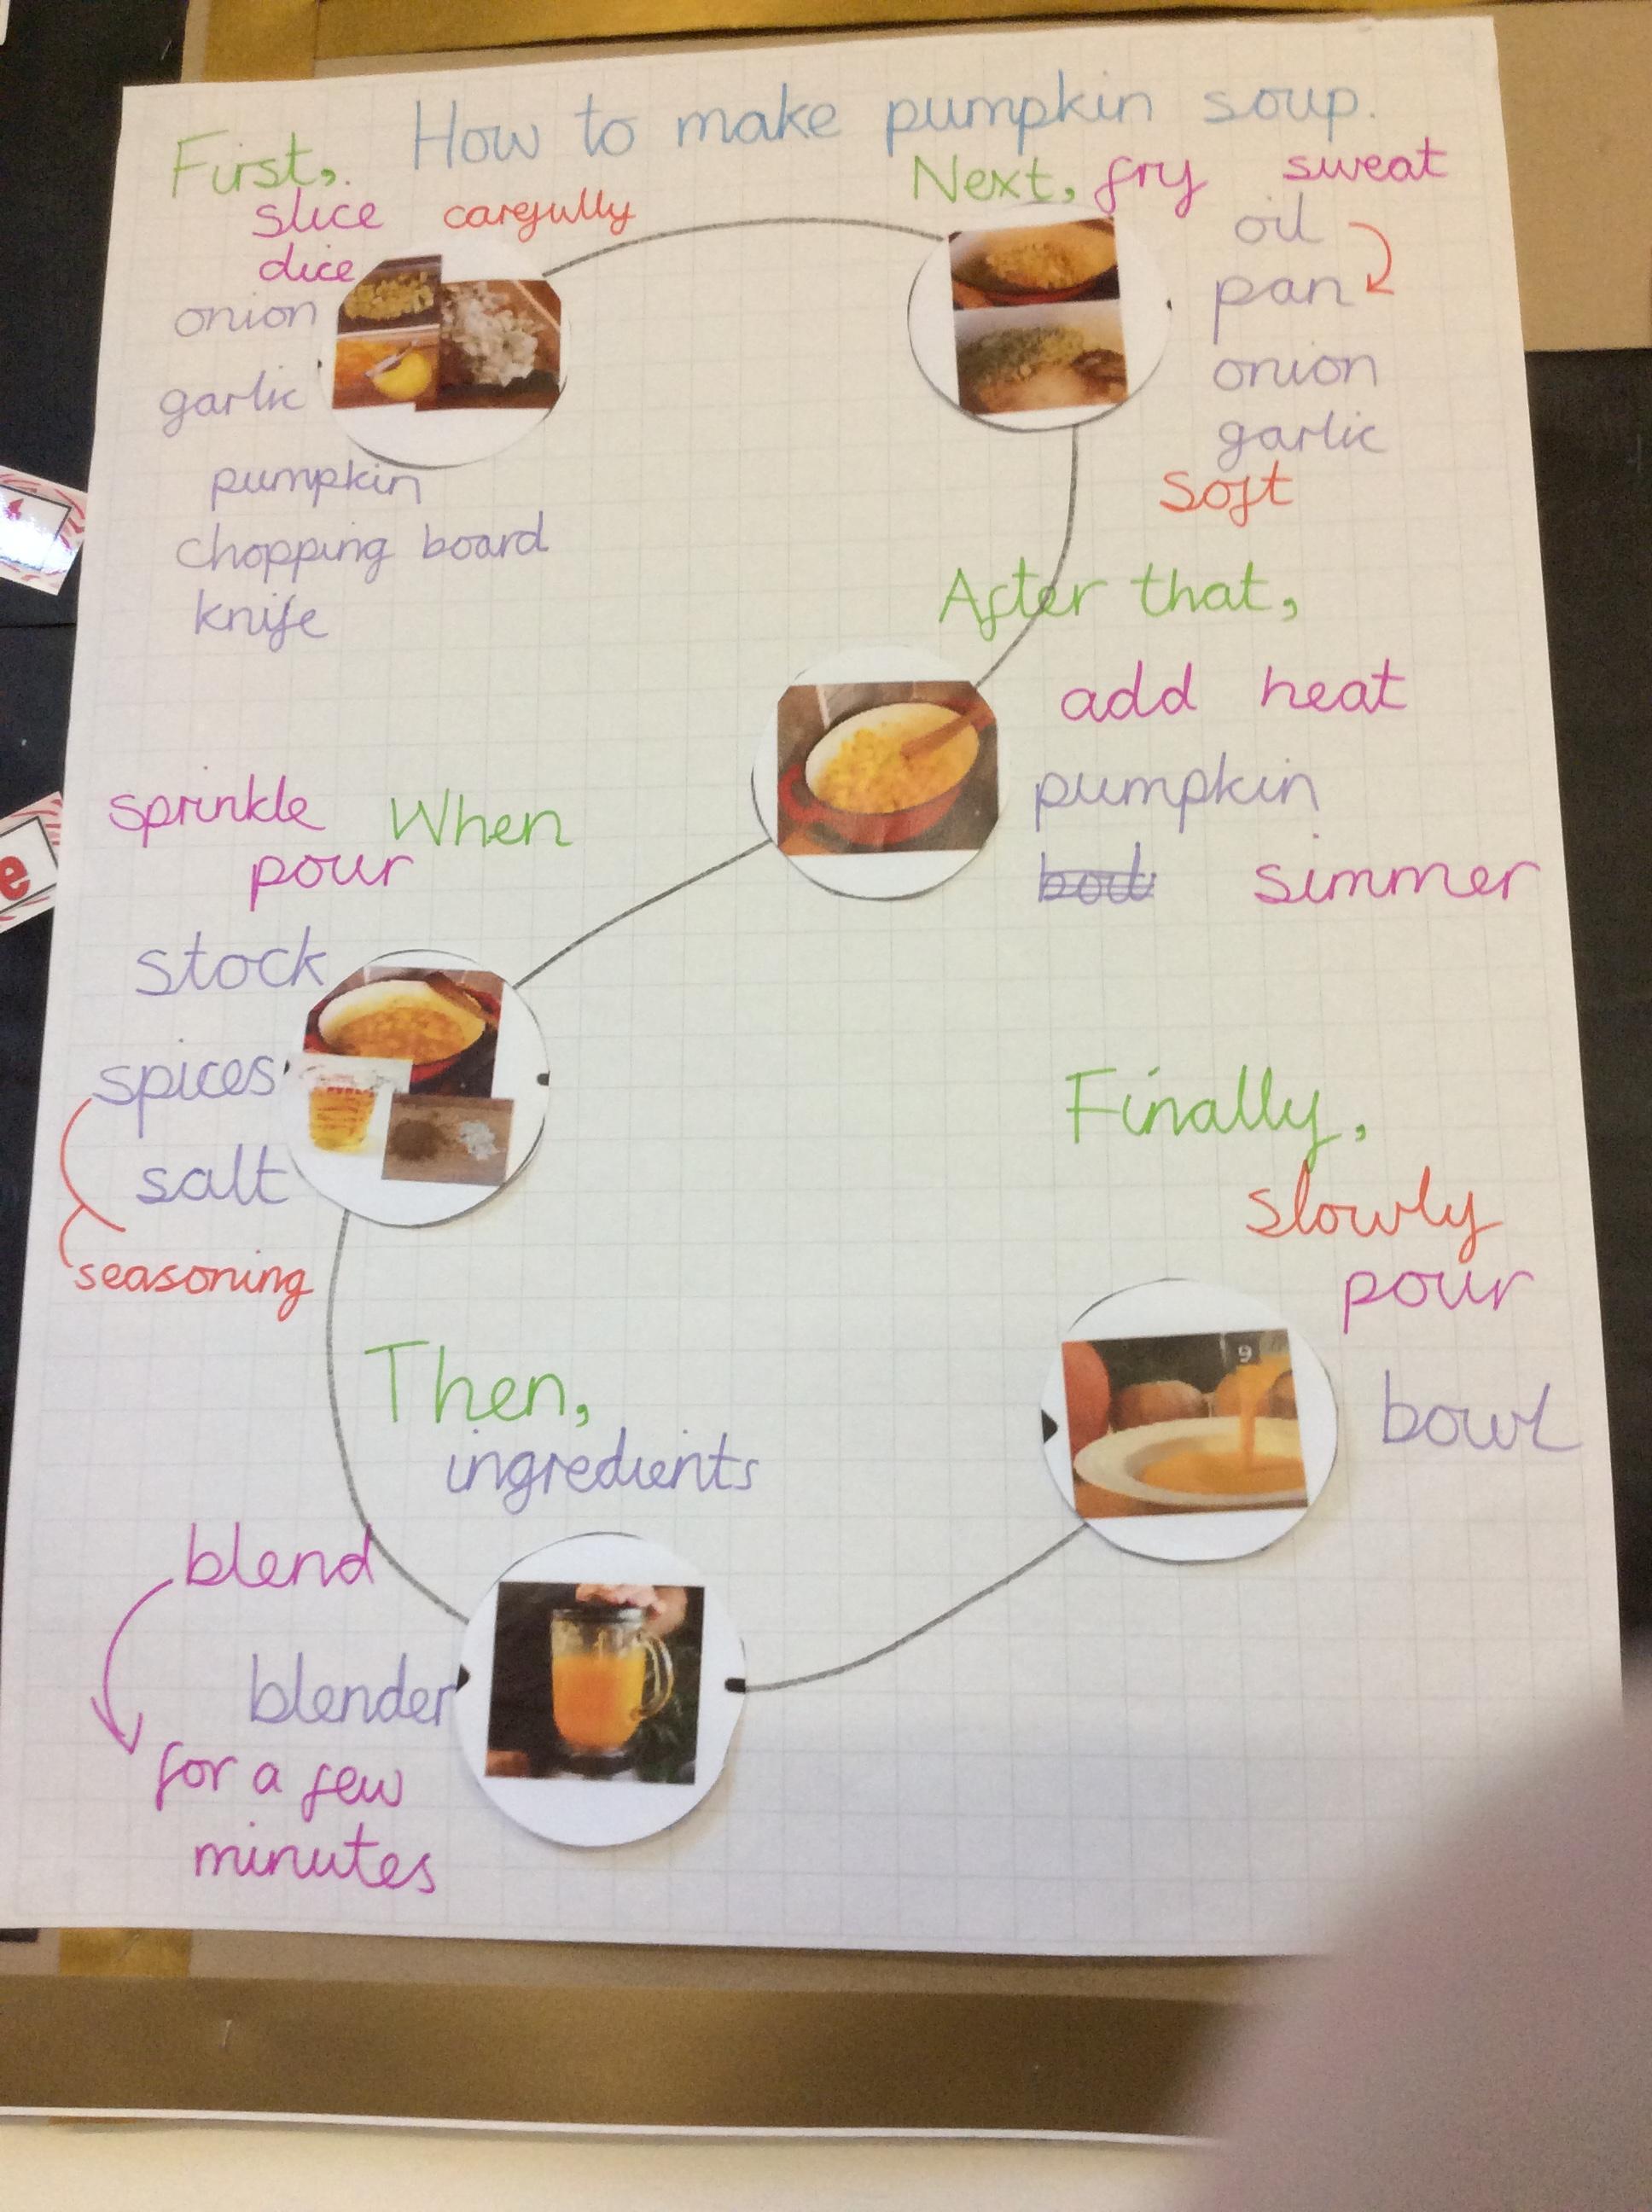 How to make pumpkin soup.
First,
slice carefully
dice
onion
garlic
pumpkin
chopping board
knife
Next, fry sweat
oil
pan
onion
garlic
Soft
After that,
add heat
pumpkin
simmer
sprinkle When
pour
stock
spices
salt
seasoning
Then,
ingredients
blend
blender
for a few
minutes
Finally,
slowly
pour
bowl
9
e